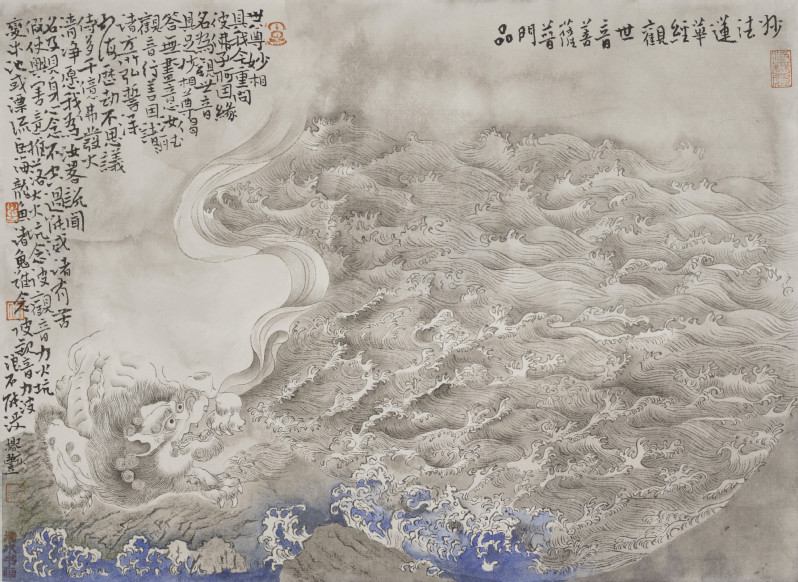 妙法蓮華經觀世音菩薩普門品
世尊妙相
具我今重問
彼佛子何因緣
名為觀世音
具足妙相尊偈
答無盡意汝聽
觀音行善
諸方所弘誓深
如海歷劫不思議
侍多千億佛發大
清淨願我為汝略說聞
名及見身心念不空過能滅諸有苦
假使興害意推落大火坑念彼觀音力火坑
變成池或漂流巨海龍魚諸鬼難念彼觀音力波
浪不能沒